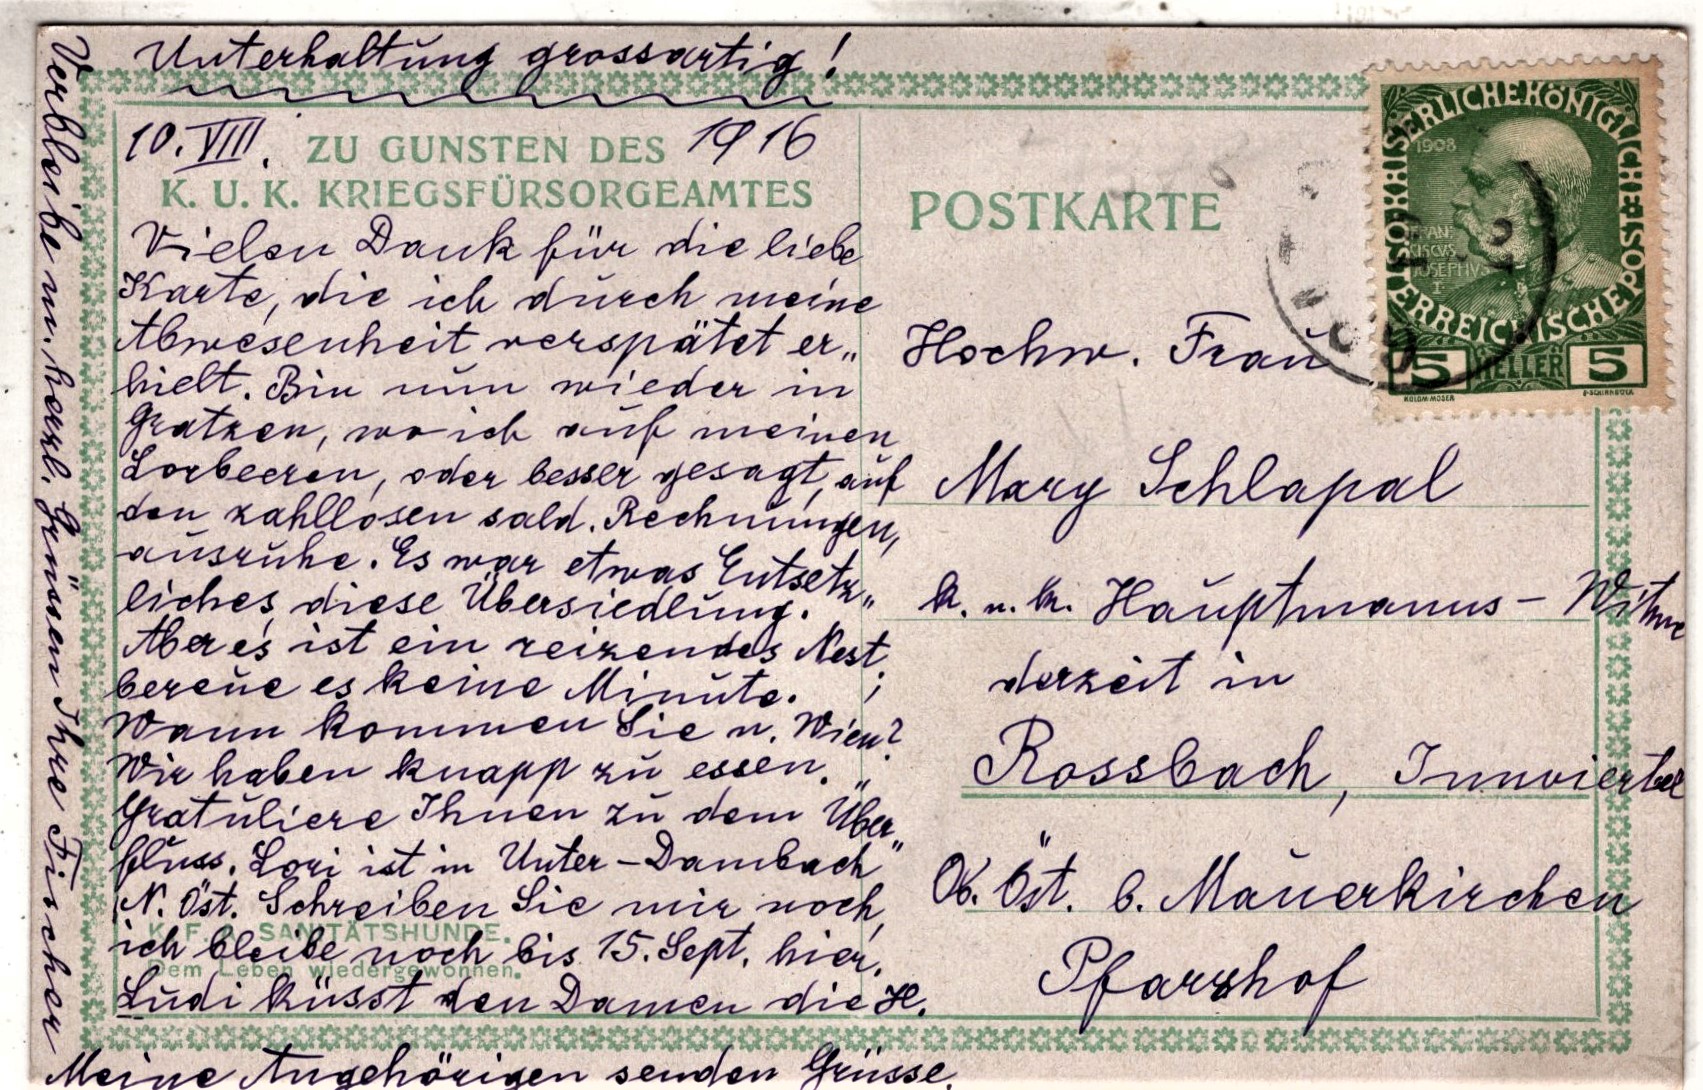 Unterhaltung grossartig!
10. VIII. 1916
ZU GUNSTEN DES
K. U. K. KRIEGSFÜRSORGEAMTES
Vielen Dank für die liebe
Karte, die ich durch meine
Abwesenheit verspätet er„
hielt. Bin nun wieder in
Gratzen, wo ich auf meinen
Lorbeeren, oder besser gesagt, auf
den zahllosen sald. Rechnungen,
ausruhe. Es war etwas Entsetz„
liches, diese Übersiedlung.
Aber es ist ein reizendes Nest;
bereue es keine Minute.
Wann kommen Sie n. Wien?
Wir haben knapp zu essen.
Gratuliere Ihnen zu dem Über„
fluss. Lori ist in Unter-Dambach
N. Öst. Schreiben Sie mir noch,
K. F. A. SANITÄTSHUNDE.
ich bleibe noch bis 15. Sept. hier.
Dem Leben wiedergewonnen.
Ludi küsst den Damen die H.
Meine Angehörigen senden Grüsse.
Verbleibe m. herzl. Grüssen Ihre Fischer
POSTKARTE
KAISERLICHE KÖNIGLICHE ÖSTERREICHISCHE POST
1908
FRAN
CISCVS
JOSEPHVS
I
5 HELLER 5
KOLOM·MOSER
F·SCHIRNBÖCK
Hochw. Frau
Mary Schlapal
k. u. k. Hauptmanns-Witwe
derzeit in
Rossbach, Innviertel
Ob. Öst. b. Mauerkirchen
Pfarrhof